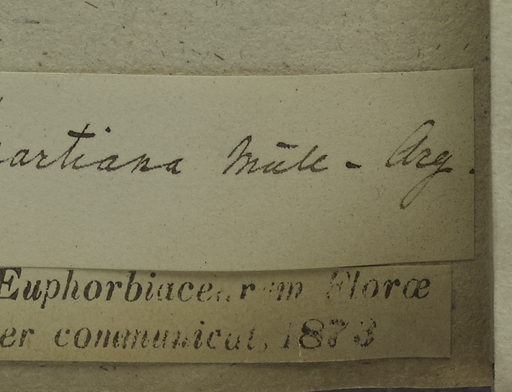 artiana Müll - Arg.
Euphorbiacearum Floræ
er communicat. 1873